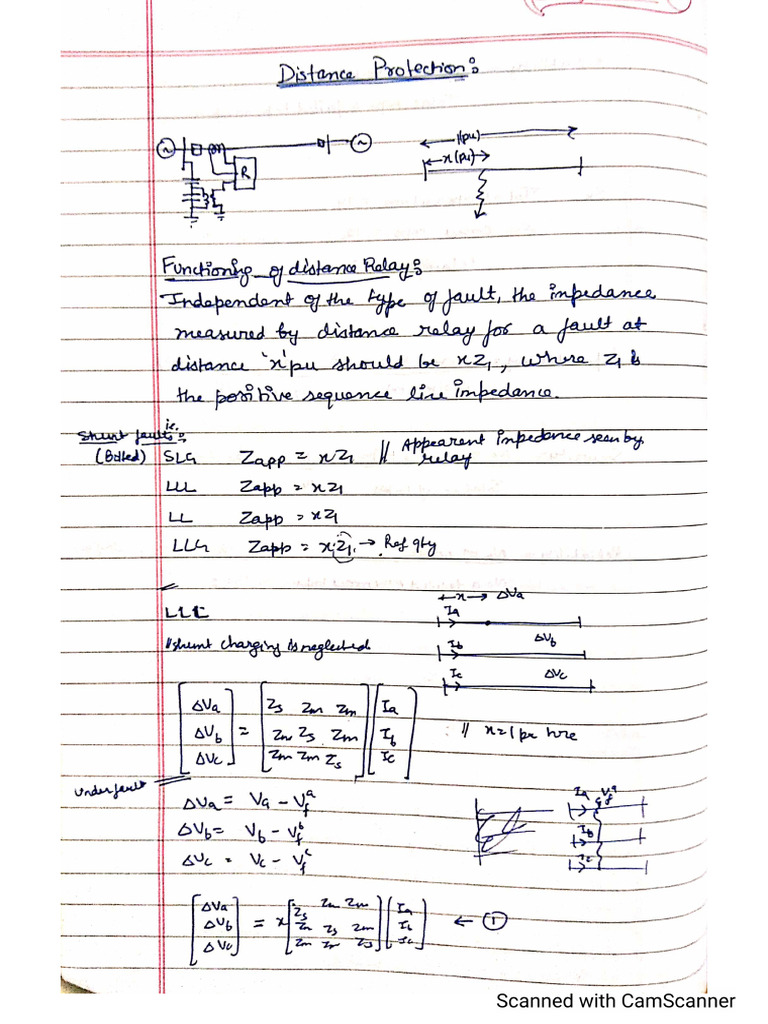 Distance Protection:
1(pu)
x(pu)
R
Functioning of distance Relay:
Independent of the type of fault, the impedance
measured by distance relay for a fault at
distance 'x' pu should be xZ1, where Z1 is
the positive sequence line impedance.
Shunt faults: ie.
(Bolted) SLG Zapp = xZ1 // Appearent impedance seen by
relay
LLL Zapp = xZ1
LL Zapp = xZ1
LLG Zapp = x.Z1. → Ref qty
LLL
//shunt charging is neglected
x ΔVa
Ia
Ib ΔVb
Ic ΔVc
[ΔVa] [Zs Zm Zm] [Ia]
[ΔVb] = [Zm Zs Zm] [Ib] : // x=1pu
[ΔVc] [Zm Zm Zs] [Ic]
Under fault
ΔVa = Va - Vfa
ΔVb = Vb - Vfb
ΔVc = Vc - Vfc
Ia Vfa
Ib
Ic
[ΔVa] [Zs Zm Zm] [Ia]
[ΔVb] = x [Zm Zs Zm] [Ib] ← 1
[ΔVc] [Zm Zm Zs] [Ic]
Scanned with CamScanner